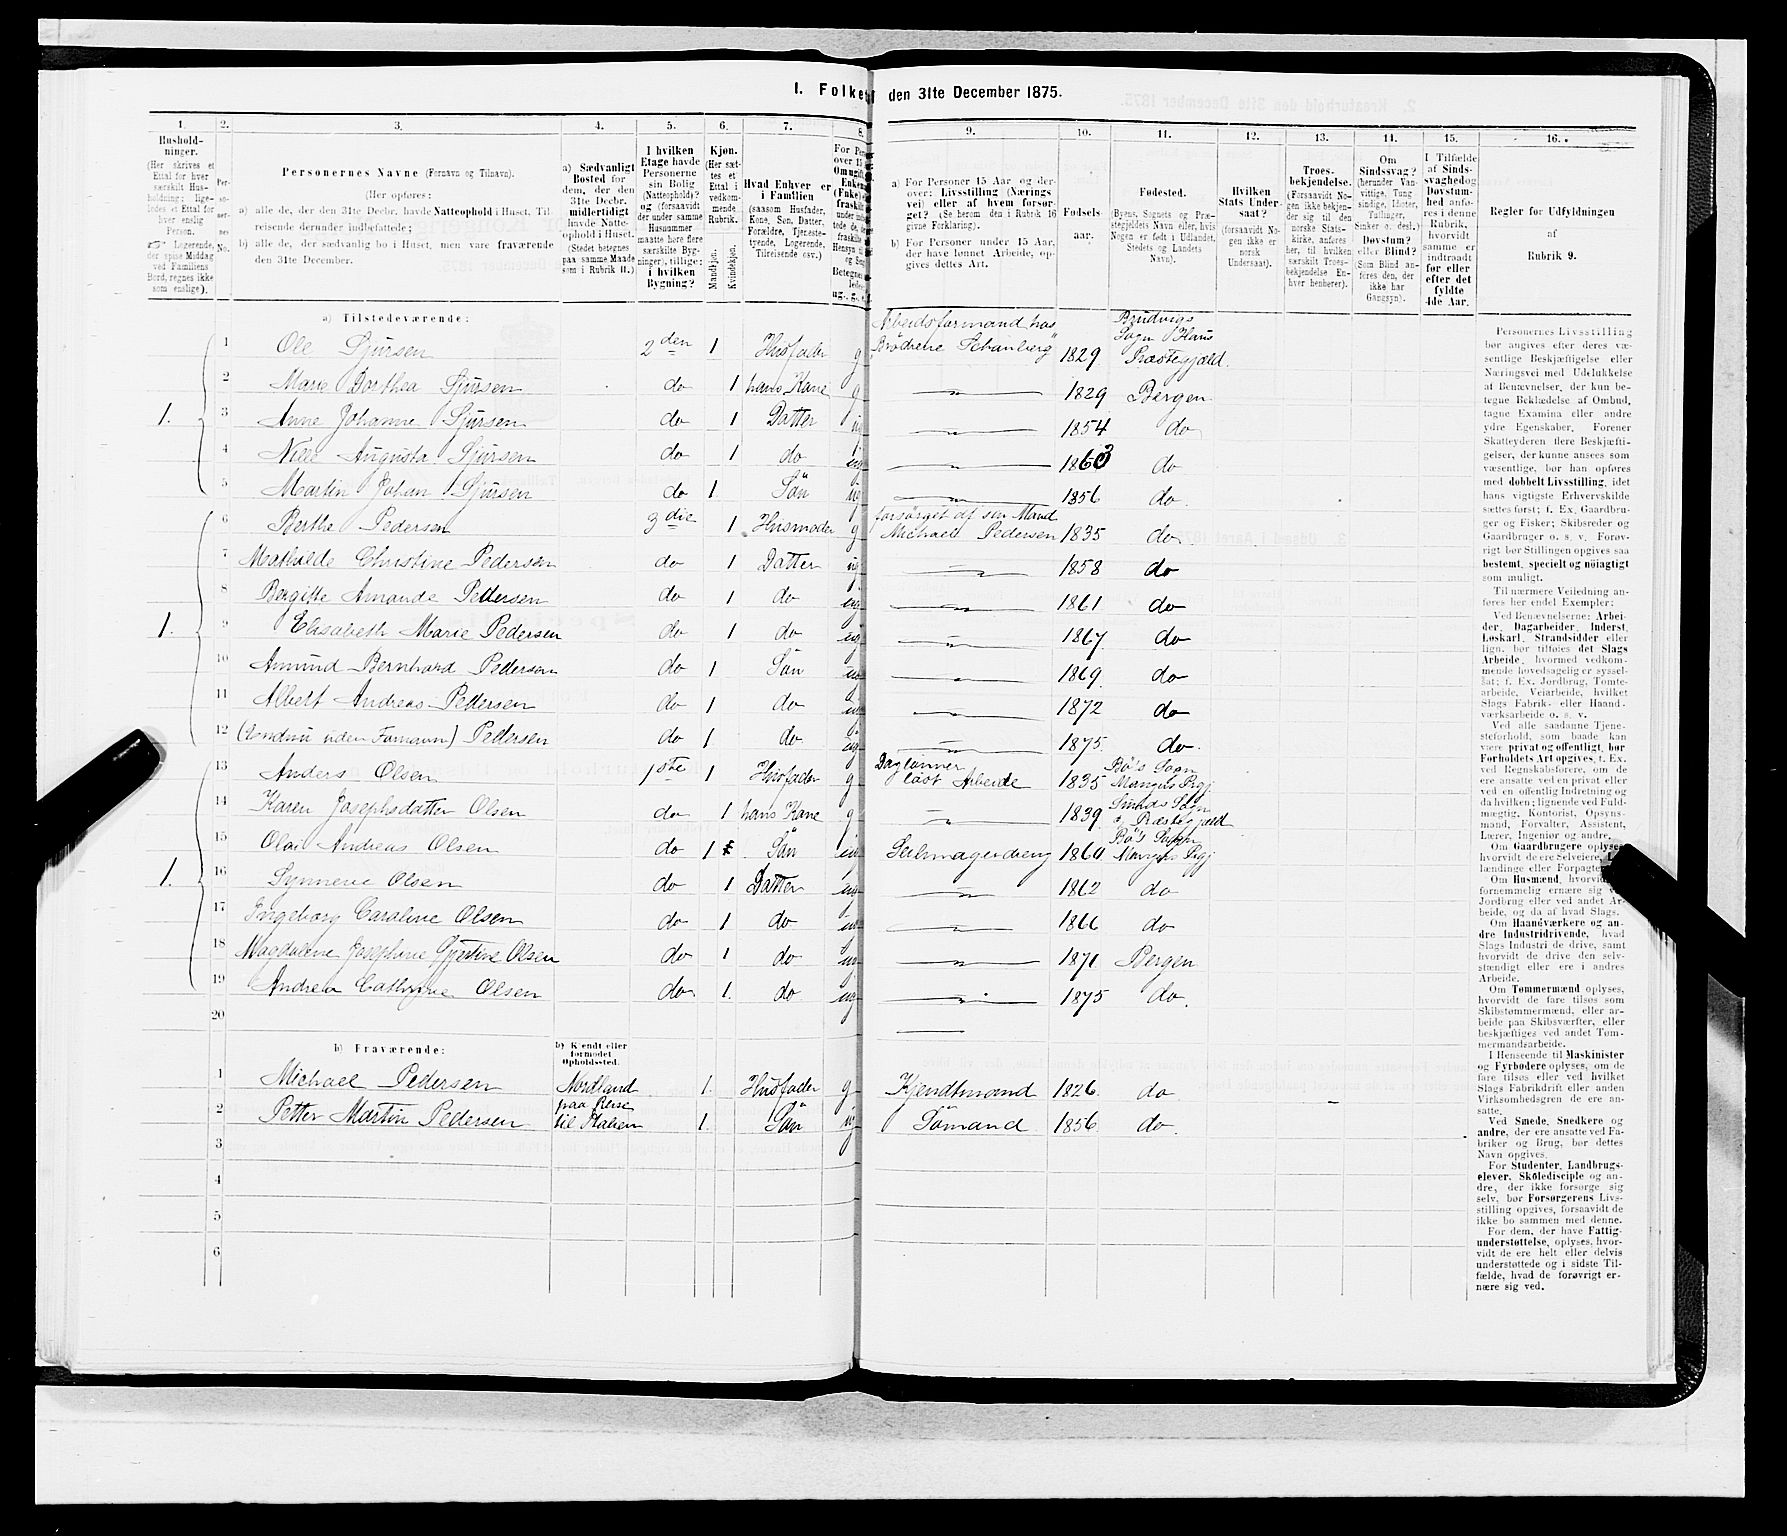 I. Folket den 31te December 1875.
1. 2. 3. 4. 5. 6. 7. 8. 9. 10. 11. 12. 13. 14. 15. 16.
Hushold-
ninger.
(Her skrives et
Ettal for hver
særskilt Hus-
holdning; lige-
ledes et Ettal for
hver enslig
Person.
Logerende,
der spise Middag
ved Familiens
Bord, regnes ikke
som enslige).
Per-
so-
ner-
nes
No.
Personernes Navne (Fornavn og Tilnavn).
(Her opføres:
a) alle de, der den 31te Decbr. havde Natteophold i Huset, Til-
reisende derunder indbefattede;
b) alle de, der sædvanlig bo i Huset, men vare fraværende
den 31te December.
a) Sædvanligt
Bosted for
dem, der den
31te Decbr.
midlertidigt
havde Natte-
ophold i Huset.
(Stedet betegnes
paa samme Maade
som i Rubrik 11.)
I hvilken
Etage havde
Personerne
sin Bolig
(Natteophold)?
og (forsaavidt
der under samme
Husnummer
maatte høre flere
særskilte Byg-
ninger), tillige:
i hvilken
Bygning?
Kjøn.
(Her sæt-
tes et
Ettal i
vedkom-
mende
Rubrik.
Mandkjøn.
Kvindekjøn.
Hvad Enhver er
i Familien
(saasom Husfader,
Kone, Søn, Datter,
Forældre, Tjeneste-
tyende, Logerende,
Tilreisende osv.)
a) For Personer 15 Aar og der-
over: Livsstilling (Nærings
vei) eller af hvem forsør-
get? (Se herom den i Rubrik 16
givne Forklaring).
b) For Personer under 15 Aar,
der have lønnet Arbeide, op-
gives dettes Art.
Fødsels-
aar.
Fødested.
(Byens, Sognets og Præ-
stegjældets Navn eller, hvis
Nogen er født i Udlandet,
Stedets og Landets
Navn).
Hvilken
Stats Under-
saat?
(forsaavidt No-
gen ikke er
norsk
Undersaat).
Troes-
bekjendelse.
(Forsaavidt No-
gen ikke bekjen-
der sig til den
norske Stats-
kirke, anføres
her, til hvilken
særskilt Troes-
bekjendelse En-
hver henhører).
Om
Sindssvag?
(herunder Van-
vittige, Tung
sindige, Idioter,
Tullinger,
Sinker o. desl.)
Døvstum?
eller Blind?
Som Blind an-
føres den, der
ikke har
Gangsyn).
I Tilfælde
af Sinds-
svaghed og
Døvstum-
hed anfø-
res i denne
Rubrik,
hvorvidt
samme er
indtraadt
før eller
efter det
fyldte
4de Aar.
Regler for Udfyldningen
af
Rubrik 9.
a) Tilstedeværende:
1 Ole Sjursen 2den 1 Husfader g Arbeidsformand hos Brödrene 1829 Brudvigs Sogn Haus Præstegjæld.
1. 2 Marie Dorthea Sjursen do 1 hans Kone g 1829 Bergen
3 Anne Johanne Sjursen do 1 Datter ug 1854 do
4 Nille Augusta Sjursen do 1 do ug 1863 do
5 Martin Johan Sjursen do 1 Sön ug 1856 do
6 Berthe Pedersen 3die 1 Husmoder g forsörget af sin Mand Michael Pedersen 1835 do
7 Mathilde Christine Pedersen do 1 Datter ug 1858 do
8 Bergitte Amande Pedersen do 1 do ug 1861 do
1. 9 Elisabeth Marie Pedersen do 1 do ug 1867 do
10 Amund Bernhard Pedersen do 1 Sön ug 1869 do
11 Albert Andreas Pedersen do 1 do ug 1872 do
12 (Endnu uden Fornavn) Pedersen do 1 do ug 1875 do
13 Anders Olsen 1ste 1 Husfader g Daglönner löst Arbeide 1835 Bö's Sogn Mangers Prgj
14 Karen Josephsdatter Olsen do 1 hans Kone g 1839 Sogn Præstegjæld
15 Olai Andreas Olsen do 1 Sön ug 1860 Bö's Sogn Mangers Prgj
1. 16 Synneve Olsen do 1 Datter ug 1862 do
17 Ingeborg Caroline Olsen do 1 do ug 1866 do
18 Magdalene Josephine Gjertine Olsen do 1 do ug 1871 Bergen
19 Andrea Cathrine Olsen do 1 do ug 1875 do
20
b) Fraværende:
b) Kjendt eller
formodet
Opholdssted.
1 Michael Pedersen Nordland 1 Husfader g Kjendtmand 1826 do
2 Petter Martin Pedersen paa Reise til Italien 1 Sön ug Sömand 1856 do
3
4
5
6
Personernes Livsstilling
bør angives efter deres væ-
sentlige Beskjæftigelse eller
Næringsvei med Udelukkelse
af Benævnelser, der kun be-
tegne Beklædelse af Ombud,
tagne Examina eller andre
ydre Egenskaber. Forener
Skatteyderen flere Beskjæfti-
gelser, der kunne ansees som
væsentlige, bør han opføres
med dobbelt Livsstilling, idet
hans vigtigste Erhvervskilde
sættes først; f. Ex. Gaardbru-
ger og Fisker; Skibsreder og
Gaardbruger o. s. v. Forøv-
rigt bør Stillingen opgives saa
bestemt, specielt og nöiagtigt
som muligt.
Til nærmere Veiledning an-
føres her endel Exempler:
Ved Benævnelserne: Arbei-
der, Dagarbeider, Inderst,
Løskarl, Strandsidder eller
lign. bør tilføies det Slags
Arbeide, hvormed vedkom-
mende hovedsagelig er syssel-
sat; f. Ex. Jordbrug, Tomte-
arbeide, Veiarbeide, hvilket
Slags Fabrik- eller Haand-
værksarbeide o. s. v.
Ved alle saadanne Tjene-
steforhold, som baade kan
være privat og offentligt, bør
Forholdets Art opgives, f. Ex.
ved Regnskabsførere, om de
ere ansatte ved en privat eller
ved en offentlig Indretning og
da hvilken; lignende ved Fuld-
mægtig, Kontorist, Opsyns-
mand, Forvalter, Assistent,
Lærer, Ingeniør og andre.
Om Gaardbrugere oplyses,
hvorvidt de ere Selveiere,
lændinge eller Forpagtere.
Om Husmænd, hvorvidt
fornemmelig ernære sig
Jordbrug eller ved andet Ar-
beide, og da af hvad Slags.
Om Haandværkere og an-
dre Industridrivende, hvad
Slags Industri de drive, samt
hvorvidt de drive den selv-
stændigt eller ere i andres
Arbeide.
Om Tømmermænd oplyses,
hvorvidt de fare tilsøs som
Skibstømmermænd, eller ar-
beide paa Skibsværfter, eller
beskjæftiges ved andet Tøm-
mermandsarbeide.
I Henseende til Maskinister
og Fyrbødere oplyses, om de
fare tilsøs eller ved hvilket
Slags Fabrikdrift eller anden
Virksomhedsgren de ere an-
satte.
Ved Smede, Snedkere og
andre, der ere ansatte ved Fa-
briker og Brug, bør dettes
Navn opgives.
For Studenter, Landbrugs-
elever, Skoledisciple og an-
dre, der ikke forsørge sig
selv, bør Forsørgerens Livs-
stilling opgives, forsaavidt de
ikke bo sammen med denne.
For dem, der have Fattig-
understøttelse, oplyses, hvor-
vidt de ere helt eller delvis
understøttede og i sidste Til-
fælde, hvad de forøvrigt er-
nære sig ved.